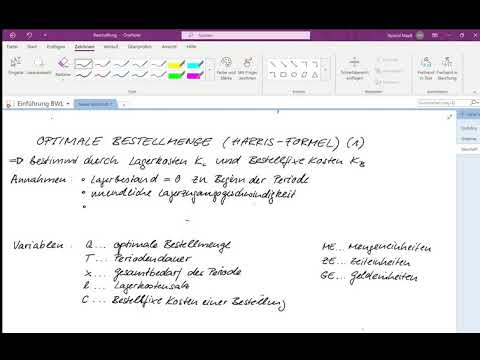 Bestellmenge - OneNote
Datei Start Einfügen Zeichnen Verlauf Überprüfen Ansicht Hilfe
Eingabe Lassoauswahl Radierer
Farbe und Stärke Mit Finger zeichnen Formen
Freihand in Text Freihand in
Einführung BWL
OPTIMALE BESTELLMENGE (HARRIS-FORMEL) (1)
=> Bestimmt durch Lagerkosten K_L und Bestellfixe Kosten K_B
Annahmen: • Lagerbestand = 0 zu Beginn der Periode
• unendliche Lagerzugangsgeschwindigkeit
•
Variablen: Q... optimale Bestellmenge ME... Mengeneinheiten
T... Periodendauer ZE... Zeiteinheiten
x... Gesamtbedarf des Periode GE... Geldeinheiten
l... Lagerkostensatz
C... Bestellfixe Kosten einer Bestellung